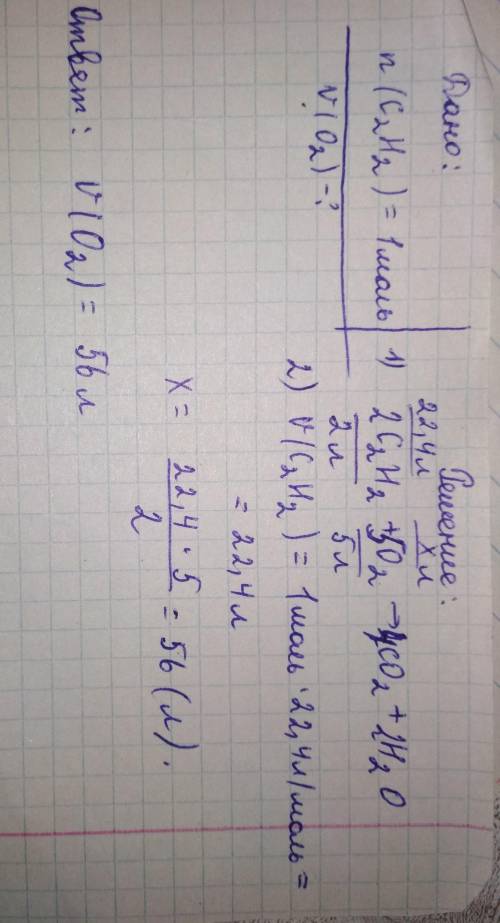 Дано:
n(C2H2) = 1моль
V(O2) - ?
Решение:
22,4л xл
1) 2C2H2 + 5O2 → 4CO2 + 2H2O
2л 5л
2) V(C2H2) = 1моль · 22,4л/моль =
= 22,4л
x = 22,4 · 5 / 2 = 56 (л).
Ответ: V(O2) = 56л